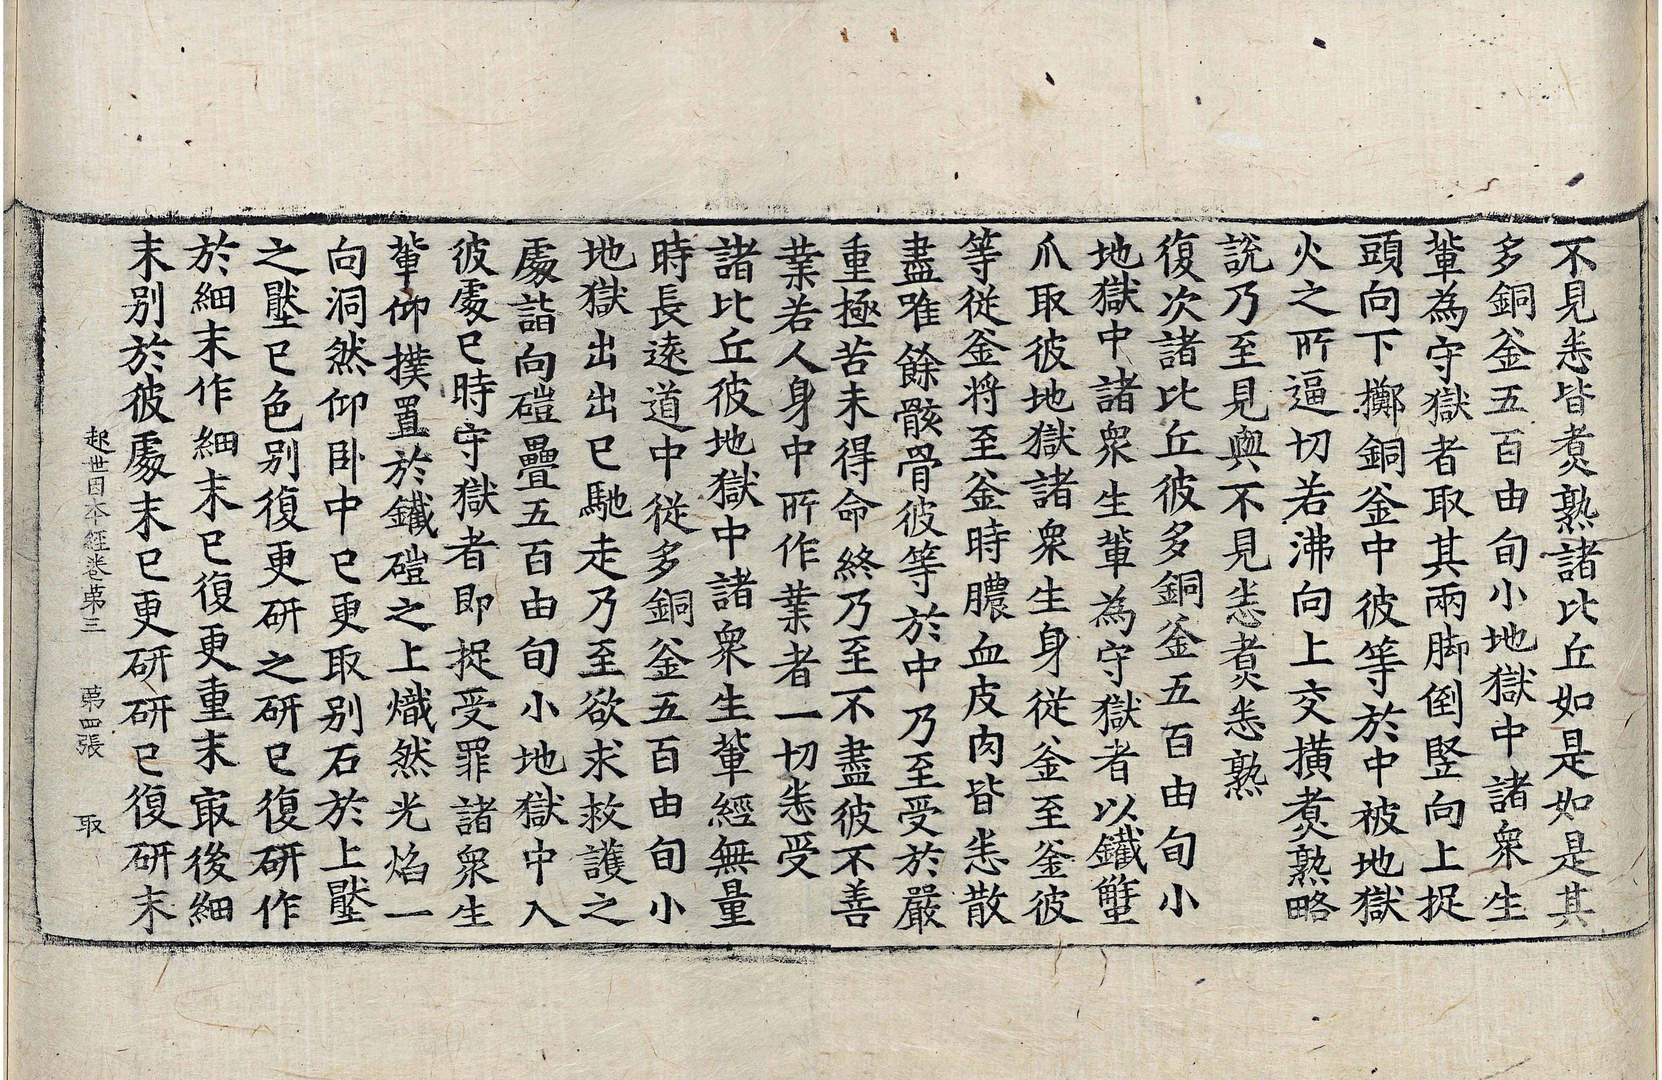 不見悉皆煑熟諸比丘如是如是其
多銅釜五百由旬小地獄中諸衆生
輩為守獄者取其兩脚倒竪向上捉
頭向下擲銅釜中彼等於中被地獄
火之所逼切若沸向上交撗煑熟略
說乃至見與不見悉煑悉熟
復次諸比丘彼多銅釜五百由旬小
地獄中諸衆生輩為守獄者以鐵蟹
爪取彼地獄諸衆生身従釜至釜彼
等従釜将至釜時膿血皮肉皆悉散
盡唯餘骸骨彼等於中乃至受於嚴
重極苦未得命終乃至不盡彼不善
業若人身中所作業者一切悉受
諸比丘彼地獄中諸衆生輩經無量
時長逺道中従多銅釜五百由旬小
地獄出出已馳走乃至欲求救護之
處詣向磑疊五百由旬小地獄中入
彼處已時守獄者即捉受罪諸衆生
輩仰撲置於鐵磑之上熾然光焰一
向洞然仰卧中已更取别石於上壓
之壓已色别復更研之研已復研作
於細末作細末已復更重末㝡後細
末别於彼處末已更研研已復研末
起世因本經卷第三　第四張　取